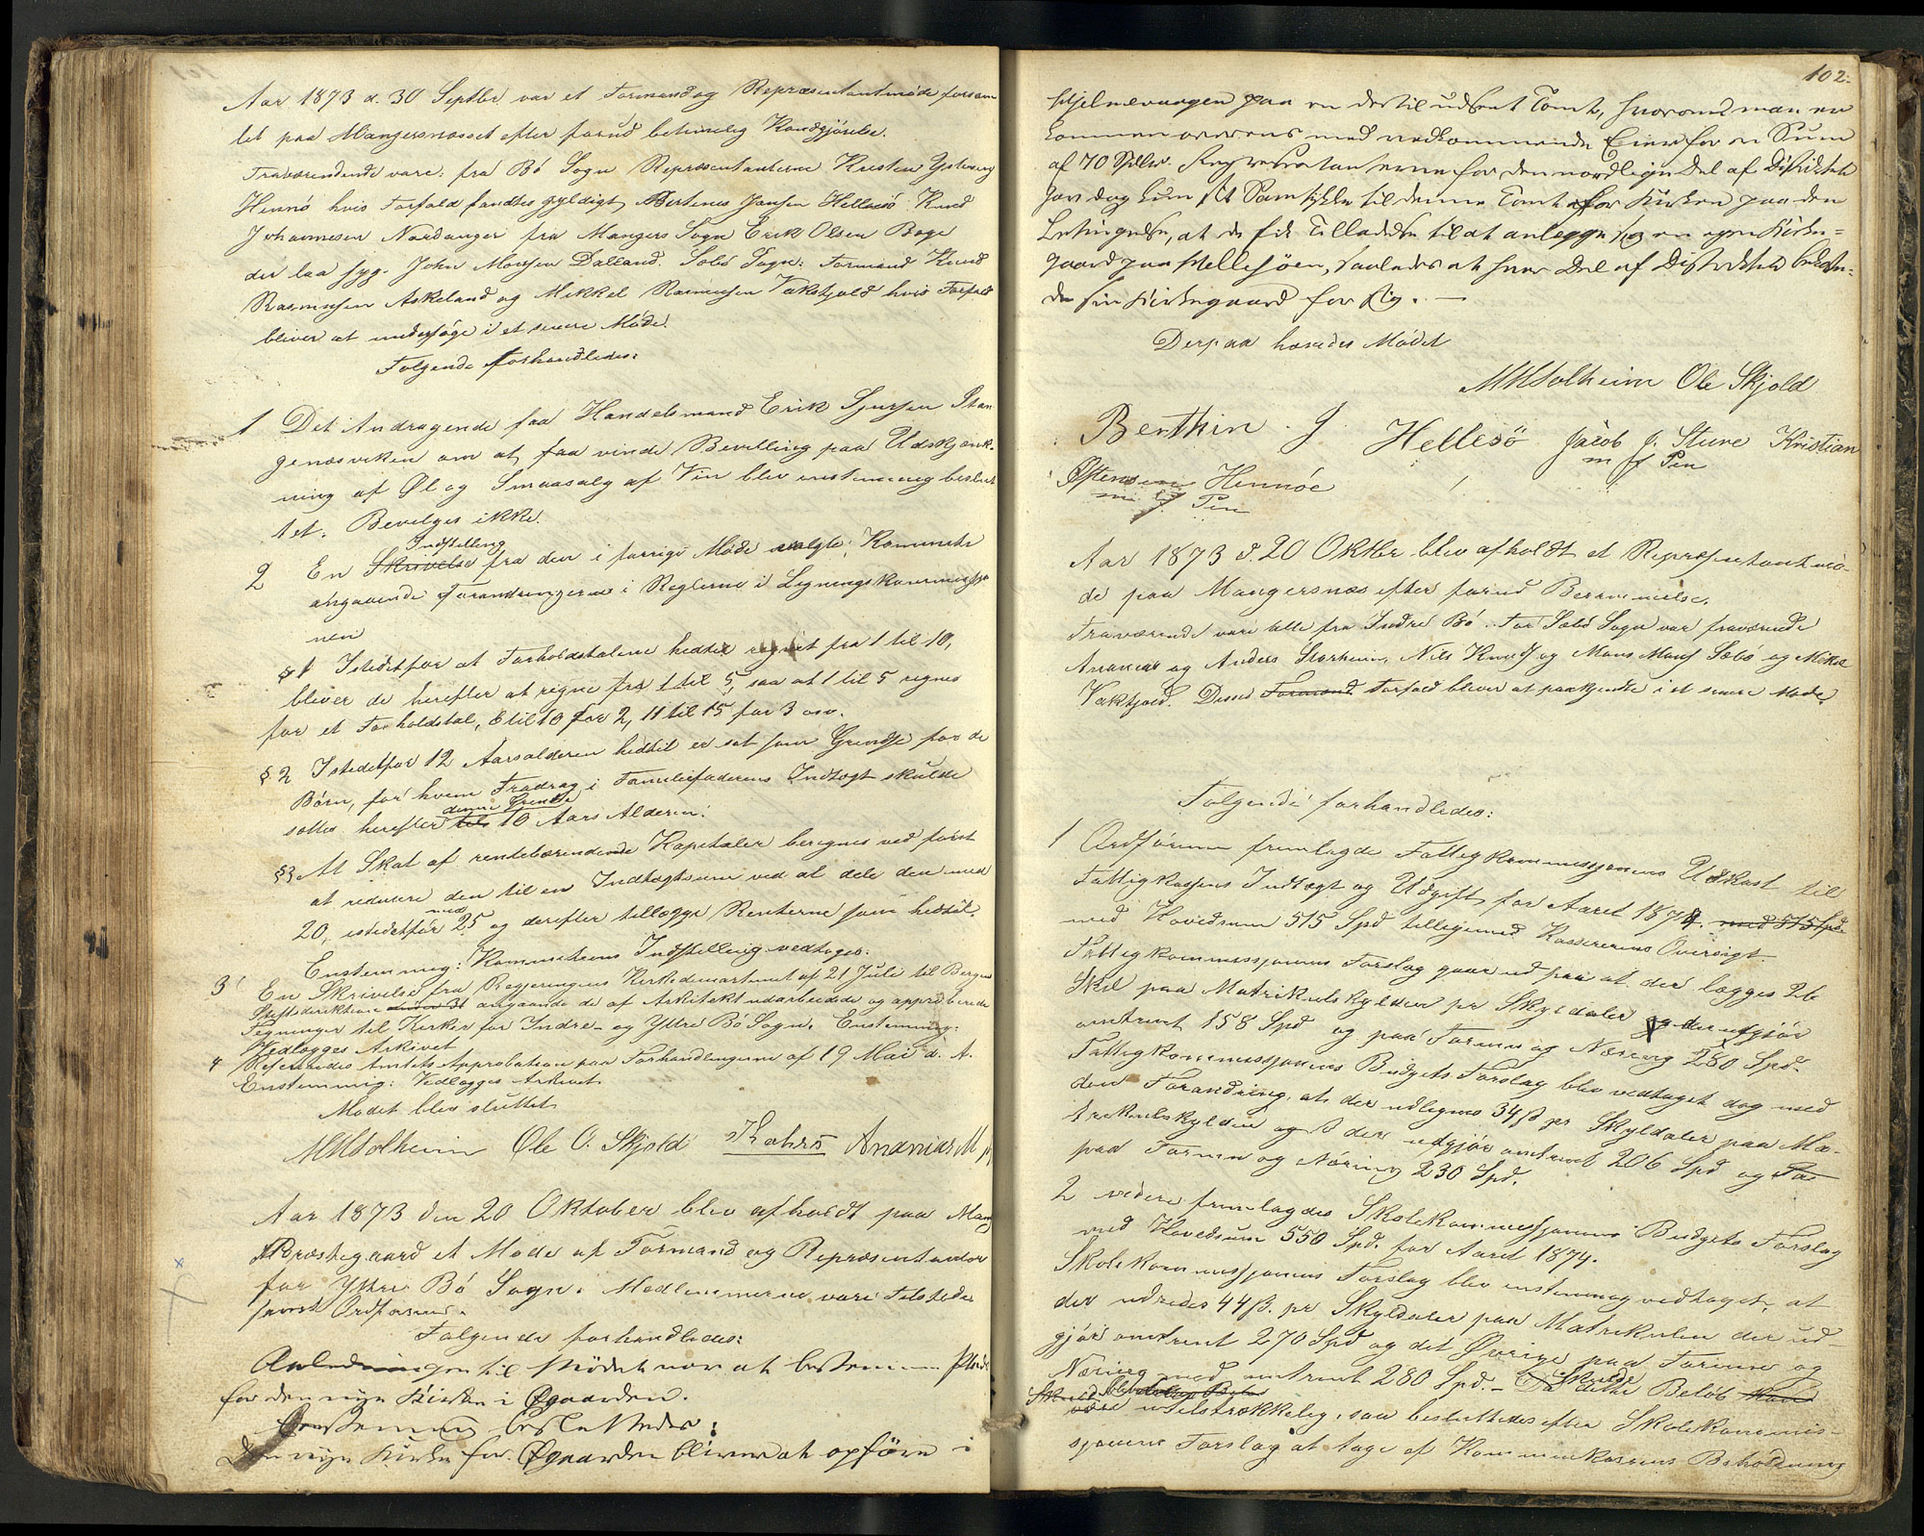 Aar 1873 d. 30 Septbr var et Formand og Repræsentantmøde forsam
let paa Mangersnæsset efter forud betimelig Kundgjørelse.
Fraværendende vare: fra Bö Sogn Repræsentanterne Kristen Ystensen
Hennö hvis Forfald fandtes gyldigt, Bertinus Jansen Hellesö Knud
Johannesen Nordanger fra Mangers Sogn Erik Olsen Boge
der laa syg. John Monsen Dalland. Sæbö Sogn: Formand Knud
Rasmussen Askeland og Mikkel Rasmussen Vakskjold hvis Forfald
bliver at undersøge i et senere Møde.
Følgende forhandledes:
1 Det Andragende fra Handelsmand Erik Sjursen Stan
genæsviken om at faa vinde Bevilling paa Udskjænk-
ning af Øl og Smaasalg af Vin blev enstemmig beslut
tet: Bevilges ikke.
Indstilling
2 En Skrivelse fra den i forrige Møde valgte Komunitè
angaaende Forandringerne i Reglerne i Ligningskommissjo
nen
§ 1 Istedetfor at Forholdstalene hedtil regnet fra 1 til 10,
bliver de herefter at regne fra 1 til 5, saa at 1 til 5 regnes
for et Forholdstal, 6 til 10 for 2, 11 til 15 for 3 osv.
§ 2 Istedetfor 12 Aarsalderen hedtil er sat som Grændse for de
Börn, for hvem Fradrag i Familiefaderens Indtægt skulde
denne Grændse
sættes herefter til 10 Aars Alderen.
§3 At Skat af rentebærendende Kapitaler beregnes ved først
at reducere den til en Indtægtsum ved at dele den med
med
20, istedetfor 25 og derefter tillægge Renterne som hedtil.
Enstemmig: Kommiteens Indstilling vedtages.
3 En Skrivelse fra Regjeringens Kirkedepartement af 21 Juli til Bergens
Stiftsdirektion angaaende de af Arkitekt udarbeidede og approberede
Tegninger til Kirker for Indre- og Ytre Bö Sogn. Enstemmig:
Vedlægges Arkivet
4 Refereredes Amtets Approbation paa Forhandlingerne af 19 Mai d. A.
Enstemmig: Vedlægges Arkivet.
Mødet blev sluttet
MHSolheim Ole O. Skjold Ananias M
Aar 1873 den 20 Oktober blev afholdt paa Mang
Præstegaard et Møde af Formænd og Repræsentanter
for Yttre Bö Sogn. Medlemmerne vare Tilstede
samt Ordføreren.
Følgende forhandledes:
Anledningen til Mödet var at bestemme Plads
for den nye Kirke i Øgaarden.
Enstemmig besluttedes:
Den nye Kirke for Øgaarden bliver at opföre i
102.
Hjelmevaagen paa en dertil udseet Tomt, hvorom man er
kommen overens med vedkommende Eier for en Sum
af 70 Spdlr. Repræsentanterne for den nordlige Del af Distriktet
gav dog kun sit Samtykke til denne Tomt for Kirken paa den
Betingelse, at de fik Tilladelse til at anlægge sig en egen Kirke-
gaard paa Hellesöen, saaledes at hver Del af Distriktet beko-
de sin Kirkegaard for sig. —
Derpaa hævedes Mødet
MHSolheim Ole Skjold
Berthin . J. Hellesö Jacob J. Sture Kristian
m f Pen
Østensen Hennöe
m f Pen
Aar 1873 d. 20 Oktbr blev afholdt et Repræsentantmö-
de paa Mangersnæs efter forud Berammelse.
Fraværende vare alle fra Indre Bö. For Sæbö Sogn var fraværende
Ananias og Anders Storheim, Nils Knud og Mons Mons Sæbö og Mikkel
Vakskjold. Disses Formand Forfald bliver at paakjende i et senere Møde.
Følgende forhandledes:
1 Ordføreren fremlagde Fattigkommissjonens Udkast til
Fattigkassens Indtægt og Udgift for Aaret 1874. med 515 Spd
med Hovedsum 515 Spd tilligemed Kassererens Oversigt.
Fattigkommissjonens Forslag gaar ud paa at der lægges 26
Skil paa Matrikulskylden pr Skyldaler og der udgjør
omtrent 158 Spd og paa Formue og Næring 280 Spd.
Fattigkommissjonens Budgets Forslag blev vedtaget dog med
den Forandring, at der udlignes 34 ß pr Skyldaler paa Ma-
trikulskylden og der udgjør omtrent 206 Spd og Paa
paa Formue og Næring 230 Spd.
2 videre fremlagdes Skolekommissjonens Budgets Forslag
med Hovedsum 550 Spd. for Aaret 1874.
Skolekommissjonens Forslag blev enstemmig vedtaget, at
der udredes 44 ß. pr Skyldaler paa Matrikulen der ud-
gjør omtrent 270 Spd og det Øvrige paa Formue og
Næring med omtrent 280 Spd. — Da dette Beløb
være utilstrækkelig, saa besluttedes efter Skolekommis-
sjonens Forslag at tage af Kommunekassens Beholdning